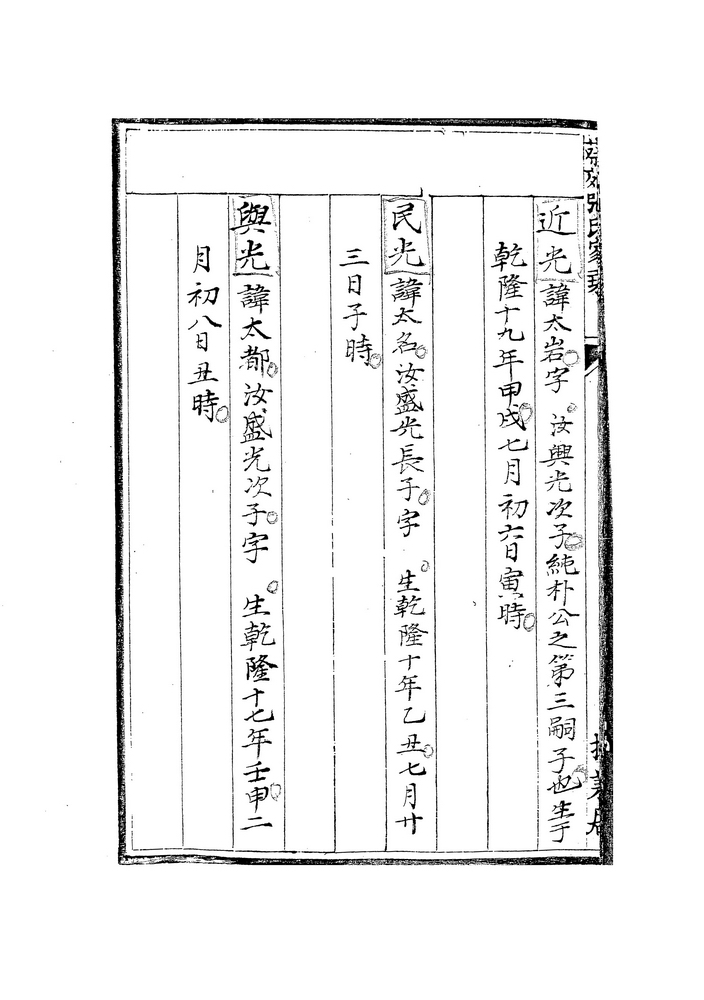 張氏家
近光諱太岩字　汝興光次子純朴公之第三嗣子也生于
乾隆十九年甲戌七月初六日寅時
民光諱太名汝盛光長子字　生乾隆十年乙丑七月廿
三日子時
與光諱太都汝盛光次子字　生乾隆十七年壬申二
月初八日丑時